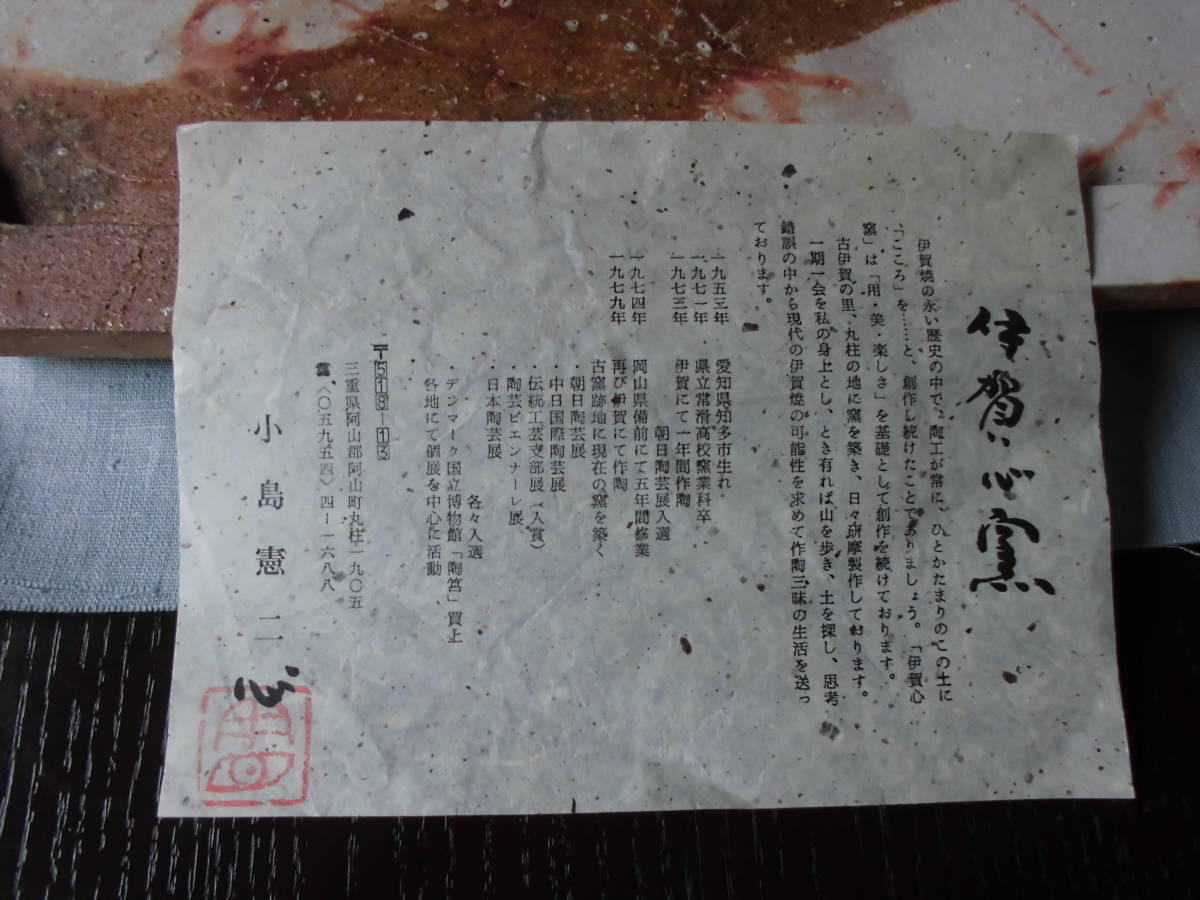 伊賀心窯
伊賀焼の永い歴史の中で、陶工が常に、ひとかたまりのこの土に
「こころ」を……と、創作し続けたことでありましょう。「伊賀心
窯」は「用・美・楽しさ」を基礎として創作を続けております。
古伊賀の里、丸柱の地に窯を築き、日々研摩製作しております。
一期一会を私の身上とし、とき有れば山を歩き、土を探し、思考
錯誤の中から現代の伊賀焼の可能性を求めて作陶三昧の生活を送っ
ております。
一九五三年 愛知県知多市生れ
一九七一年 県立常滑高校窯業科卒
一九七三年 伊賀にて一年間作陶
朝日陶芸展入選
一九七四年 岡山県備前にて五年間修業
一九七九年 再び伊賀にて作陶
古窯跡地に現在の窯を築く
・朝日陶芸展
・中日国際陶芸展
・伝統工芸支部展(入賞)
・陶芸ビエンナーレ展
・日本陶芸展
各々入選
・デンマーク国立博物館「陶筥」買上
各地にて個展を中心に活動
〒518-13
三重県阿山郡阿山町丸柱一九〇五
☎〈〇五九五四〉四-一六八八
小島憲二
心